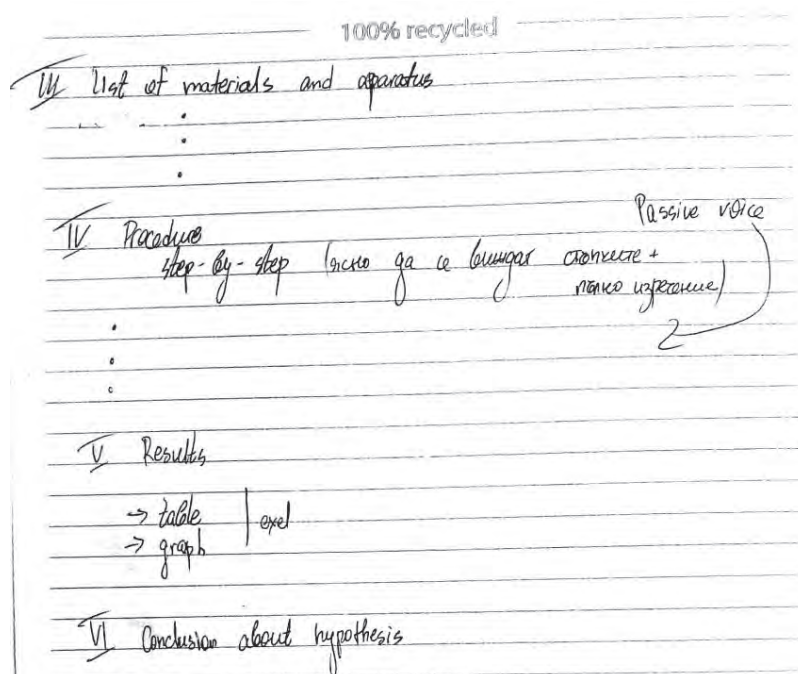 100% recycled
III List of materials and aparatus
•
•
•
Passive voice
IV Procedure
step-by-step (ясно да се виждат стъпките +
пълно изречение)
•
•
•
V Results
→ table | exel
→ graph
VI Conclusion about hypothesis